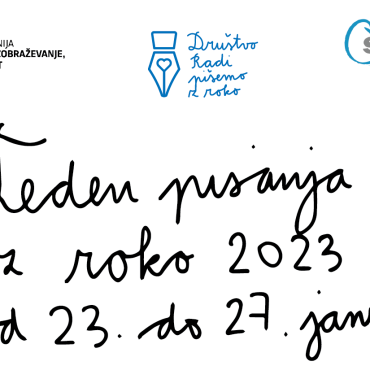 NIJA
ZOBRAŽEVANJE,
T
Društvo
Radi
pišemo
z roko
Š
Teden pisanja
z roko 2023
d 23. do 27. jan